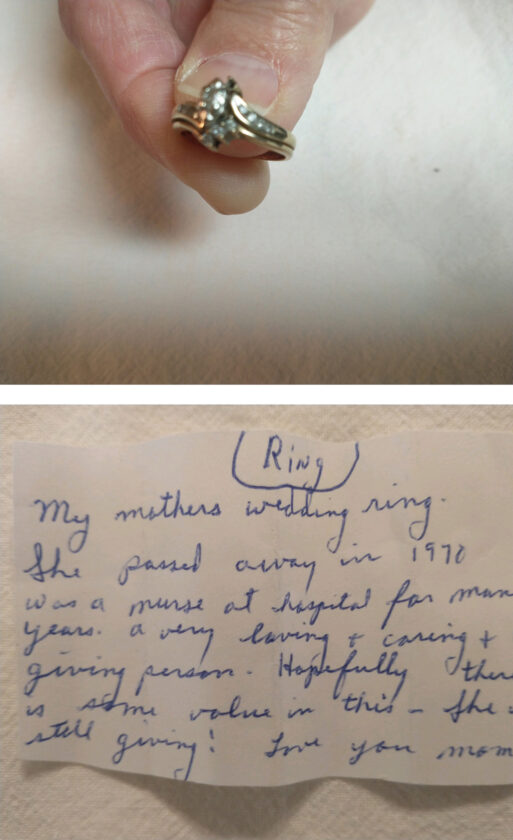 Ring
My mothers wedding ring.
She passed away in 1970
was a nurse at hospital for man
years. a very loving + caring +
giving person. Hopefully ther
is some value in this - She
still giving! Love you mom